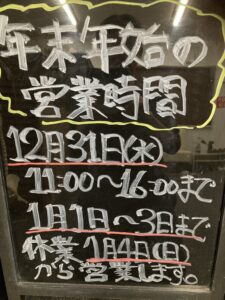 年末年始の
営業時間
12月31日(水)
11:00〜16:00まで
1月1日〜3日まで
休業 1月4日(日)
から営業します。